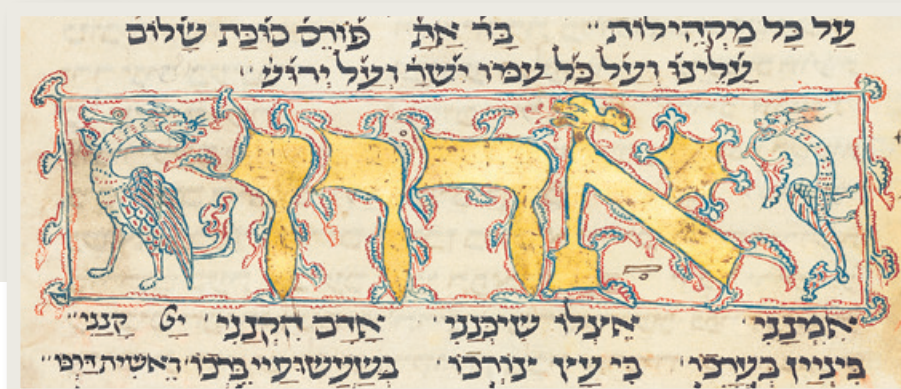 על כל מקהילות" בר' את' פורס סוכת שלום
עלינו ועל כל עמו ישר' ועל ירוש'
אדון
אמנני' אצלו שיכנני' אדם הקנני' קנני"
ביניין בערכו' בי עץ צורכו' בשעשועיי ברכו' ראשית דרכו'